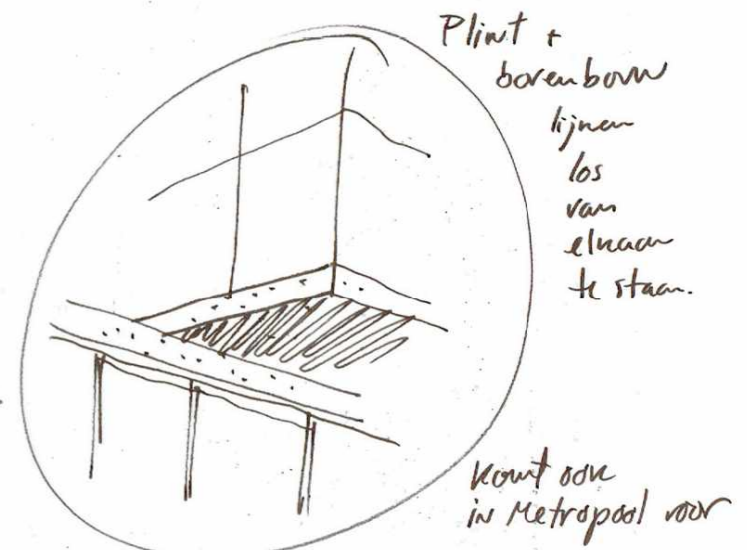 Plint +
bovenbouw
lijnen
los
van
elkaar
te staan.
komt ook
in Metropool voor